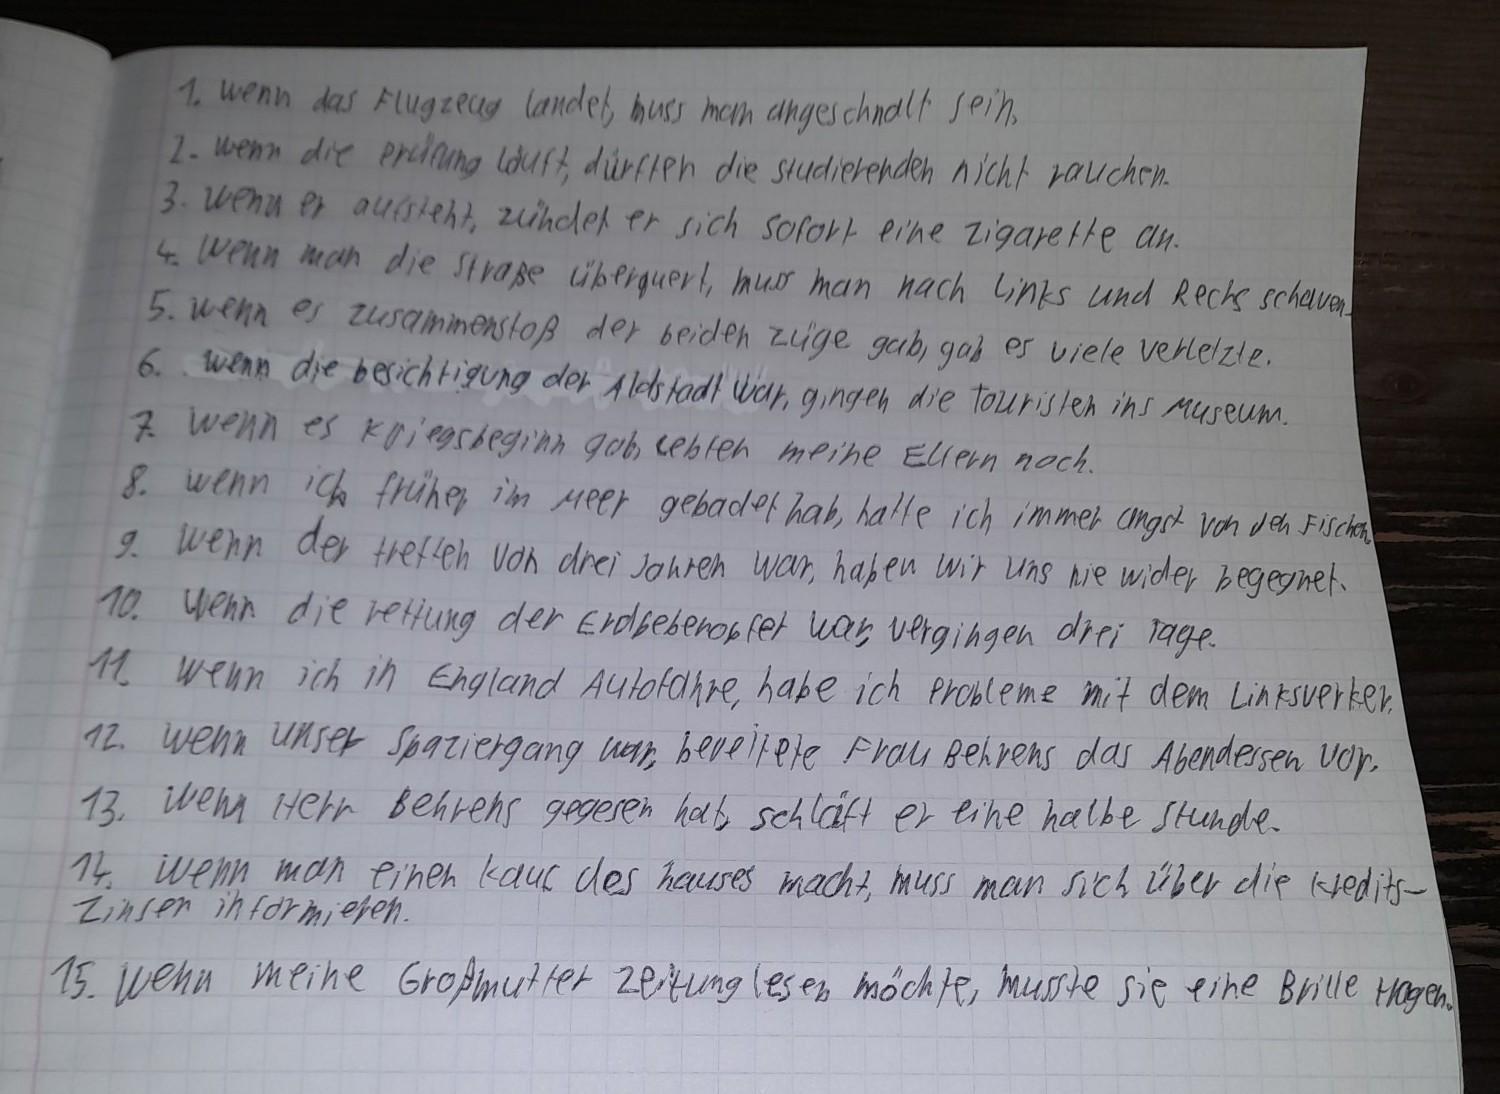 1. wenn das Flugzeug landet, muss man angeschnallt sein.
2. wenn die prüfung läuft, dürften die studierenden nicht rauchen.
3. wenn er aufsteht, zündet er sich sofort eine zigarette an.
4. Wenn man die straße überquert, muss man nach links und Rechs schauen.
5. wenn es zusammenstoß der beiden züge gab, gab es viele verletzte.
6. wenn die besichtigung der Aldstadt war, gingen die Touristen ins Museum.
7. wenn es Kriegsbeginn gab, lebten meine Eltern noch.
8. wenn ich früher im Meer gebadet hab, hatte ich immer angst von den Fischen.
9. wenn der treffen von drei Jahren war, haben wir uns nie wider begegnet.
10. wenn die rettung der Erdbebenopfer war, vergingen drei Tage.
11. wenn ich in England Autofahre, habe ich Probleme mit dem Linksverker.
12. wenn unser Spaziergang war, bereitete Frau Behrens das Abendessen vor.
13. wenn Herr Behrens gegesen hat, schläft er eine halbe stunde.
14. wenn man einen kauf des hauses macht, muss man sich über die kredits-
zinsen informieren.
15. wenn meine Großmutter zeitung lesen möchte, musste sie eine Brille tragen.